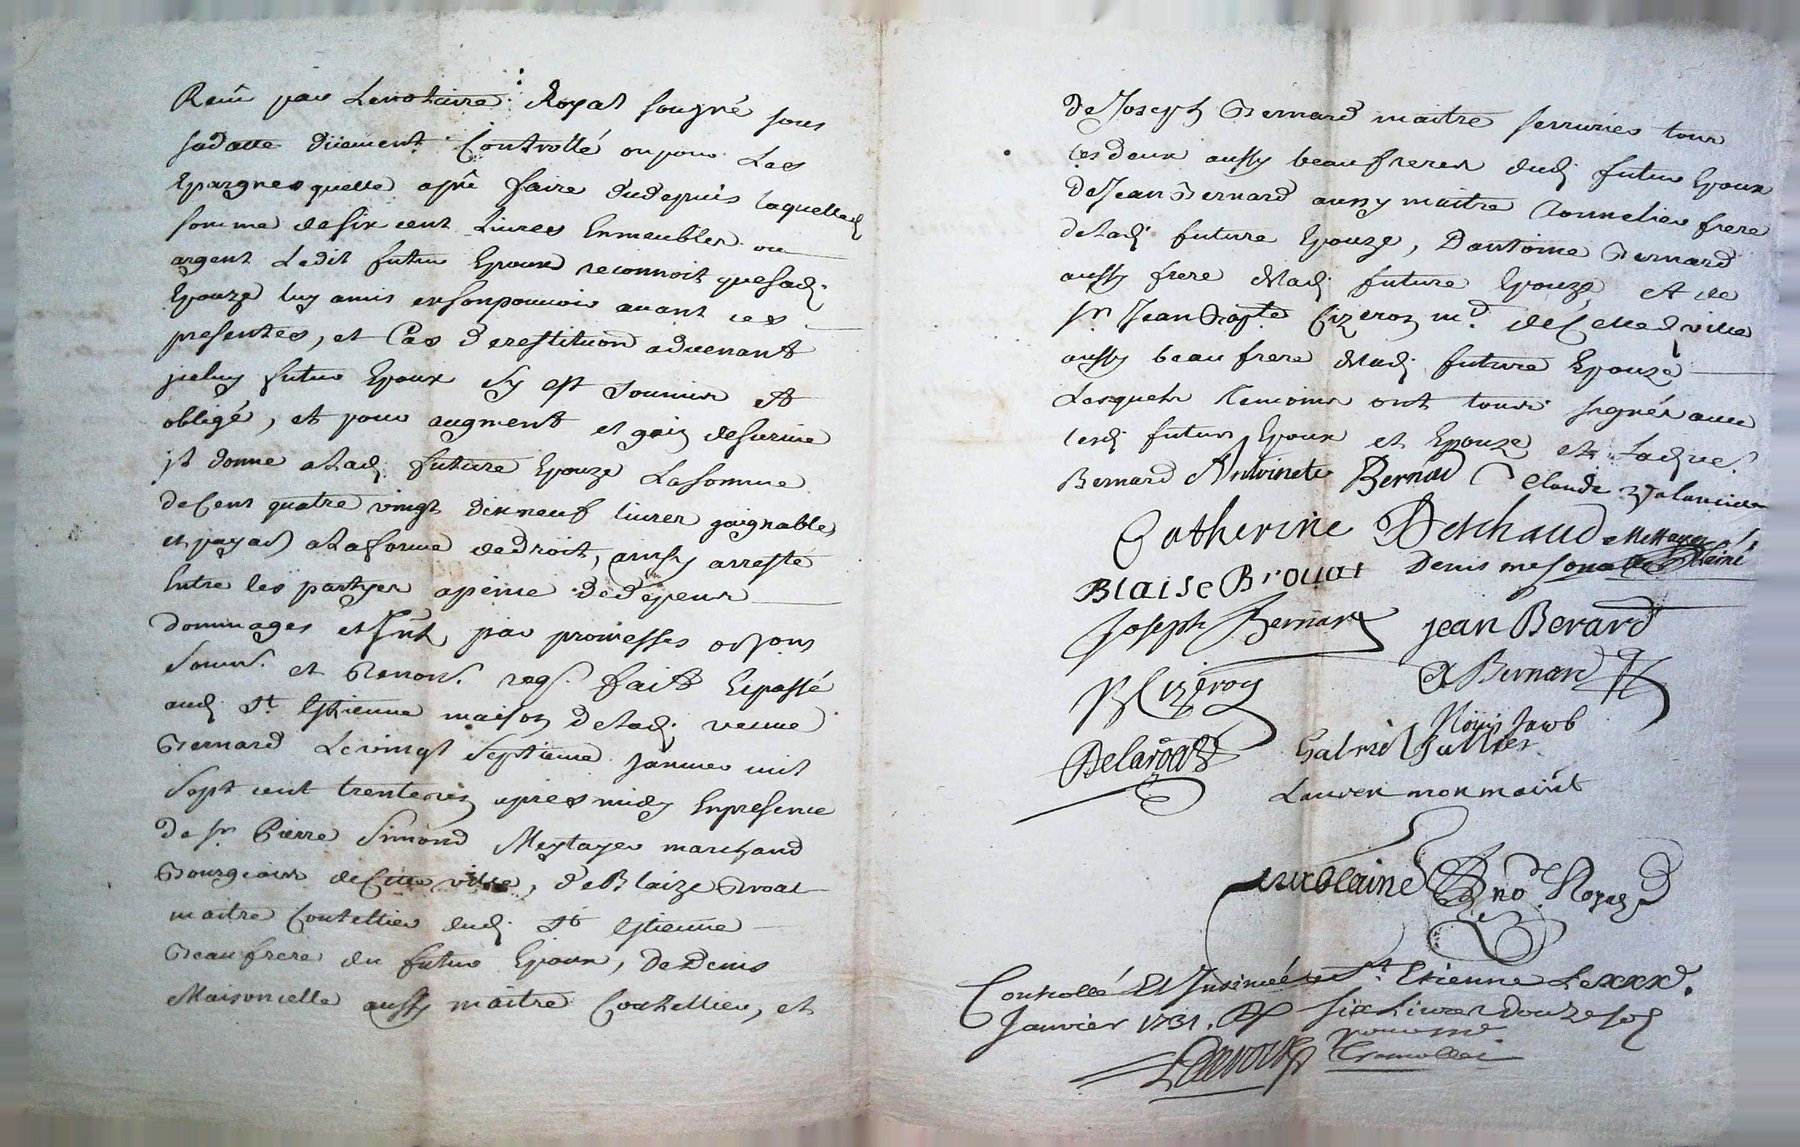 Reçu par Le notaire Royal sougné sous
sadatte düement Controllé ou pour Les
Epargnes quelle a pû faire dudepuis laquelled
somme de six cent Livres En meubles ou
argent Ledit futur Epoux reconnoit que sad.
Epouze luy a mis en son pouvoir avant ces
presentes, et Cas de restitution advenant
jceluy futur Epoux s'y est soumis et
obligé, et pour augment et gain de survie
jl donne a lad. future Epouze La somme
de Cent quatre vingt dix neuf livres gaignables
et payab a la forme de droit, ainsy arresté
Entre les partyes a peine de depens
dommages et jnt par promesses
soum. et Renon. fait Et passé
aud. St. Estienne maison de lad. veuve
Bernard Le vingt septieme janvier mil
sept cent trente apres midy En presence
de Sr. Pierre Simond Meytayer marchand
Bourgeois de Cette ville, de Blaize Broat
maitre Coutellier dud. St Estienne
Beau frere du futur Epoux, de Denis
Maisoncelle aussy maitre Coutellier, et
de Joseph Bernard maitre serrurier tous
les deux aussy beaufreres dud. futur Epoux
de Jean Bernard aussy maitre Tonnelier frere
de lad. future Epouze, D'antoine Bernard
aussy frere de lad. future Epouze et de
Sr. Jean Bapte. Cizeron md. de Cette d. ville
aussy beau frere de lad. future Epouze
Lesquels temoins ont tous signés avec
lesd. futurs Epoux et Epouze et Lad. ve.
Bernard Antoinete Bernad Claude
Catherine Deschaud Mettayer
Blaise Brouat Denis mesonselle
Joseph Bernard jean Berard
B Cizeron A Bernard
Delaroa Louis Jacob
Gabriel
Laurens monmaint
not. Royal
Controllé Et Insinué a St. Etienne Le xxxe.
Janvier 1731. R six Livres douze sols